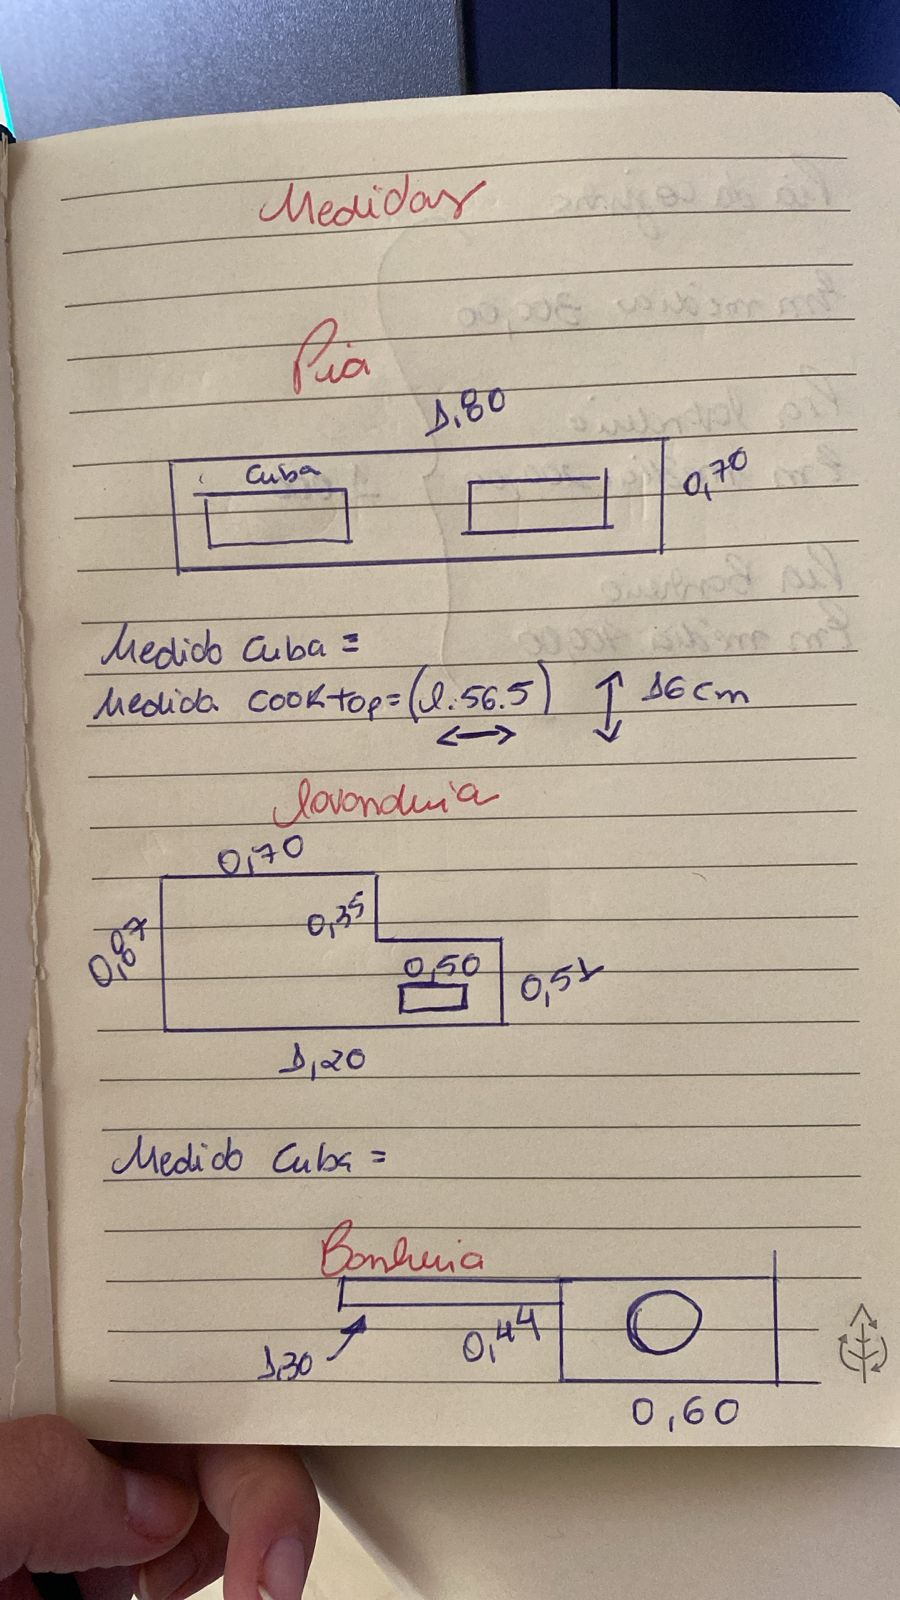 Medidas
Pia
1,80
Cuba
0,70
Medida Cuba =
Medida cooktop = (l. 56.5) 16 cm
lavanderia
0,70
0,35
0,87
0,50
0,51
1,20
Medida Cuba =
Banheiro
0,44
1,30
0,60